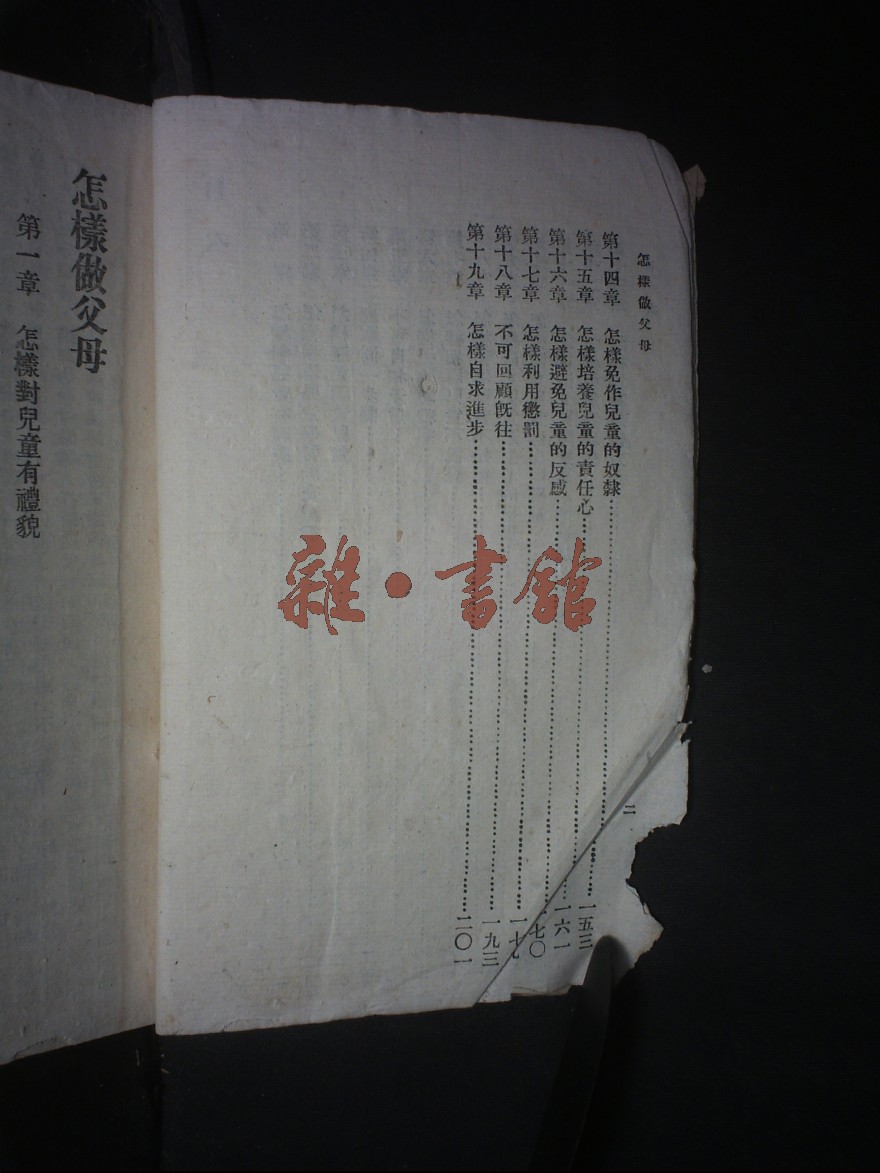 怎樣做父母
二
第十四章　怎樣免作兒童的奴隸……一五三
第十五章　怎樣培養兒童的責任心……一六一
第十六章　怎樣避免兒童的反感……一七〇
第十七章　怎樣利用懲罰……一七
第十八章　不可回顧既往……一九三
第十九章　怎樣自求進步……二〇一
怎樣做父母
第一章　怎樣對兒童有禮貌
雜・書館